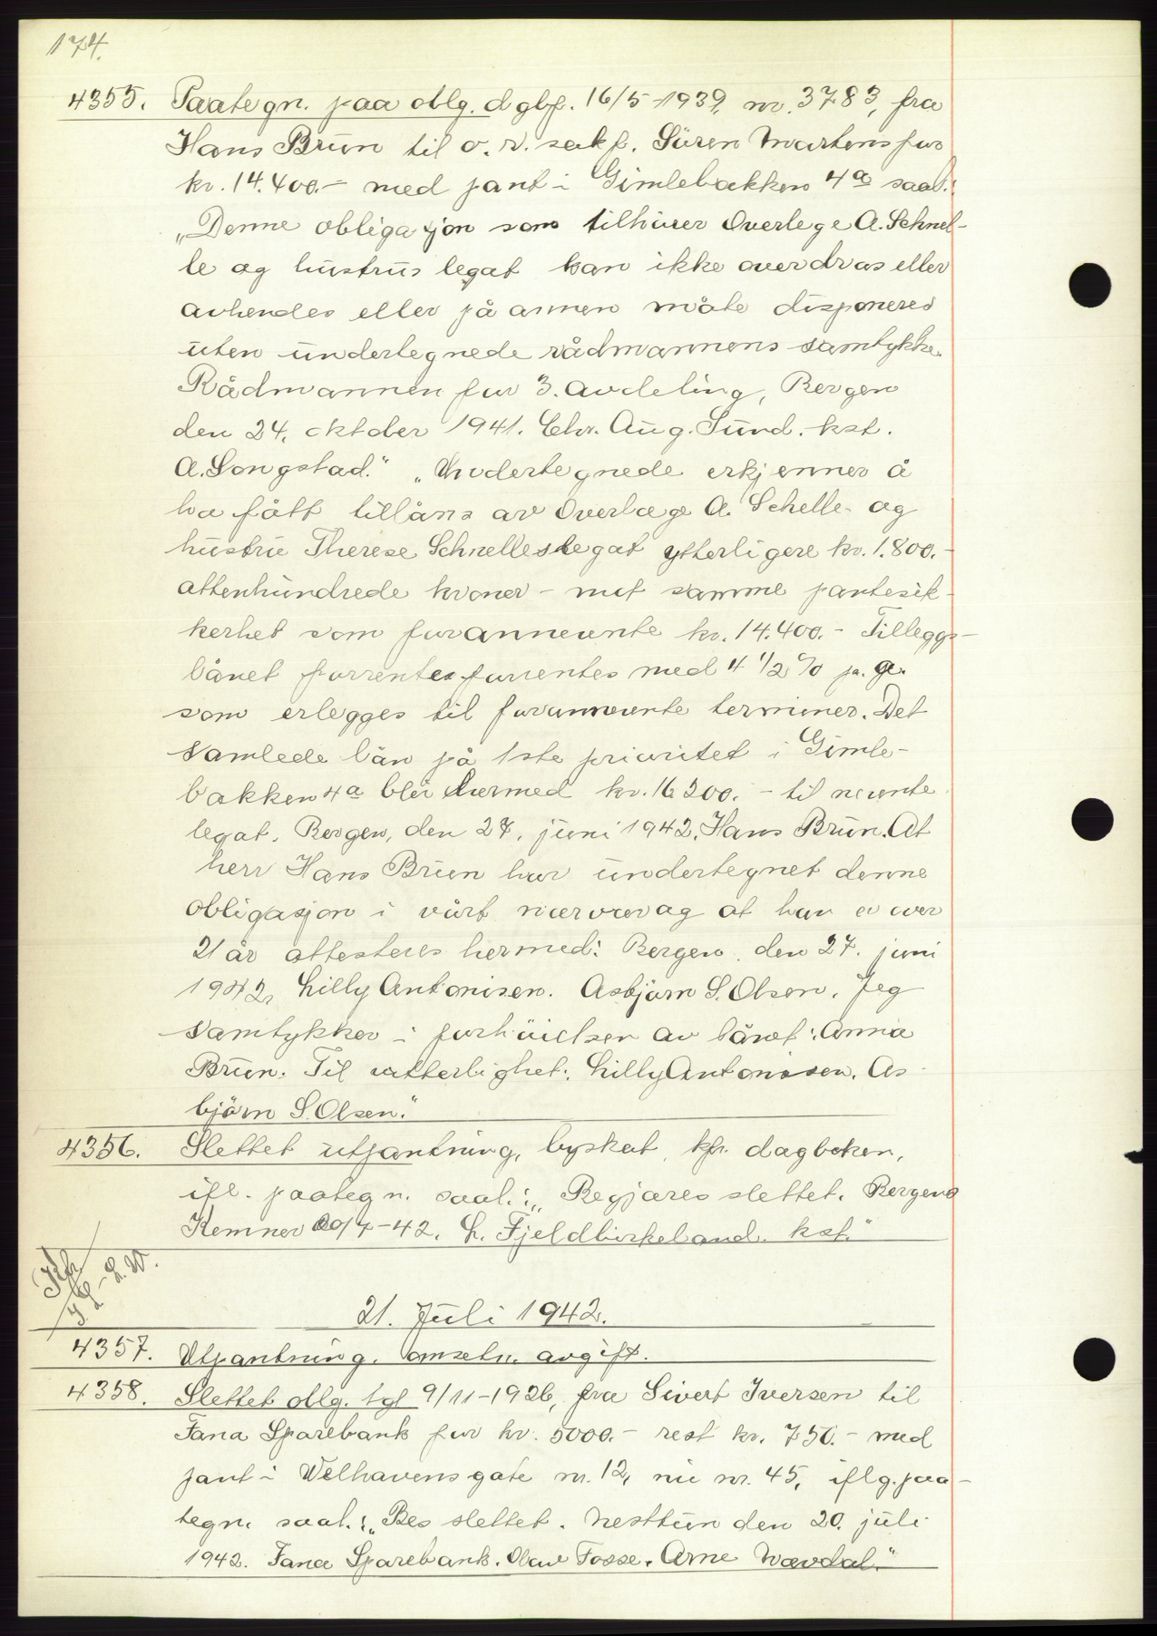 174.
4355. Paategn. paa oblg. dgbf. 16/5-1939, nr. 3783, fra
Hans Bruun til o.r.sakf. Sören Martens for
kr. 14.400.- med pant i Gimlebakken 4a saal.:
"Denne obligasjon som tilhörer Overlege A. Schnel-
le og hustrus legat kan ikke overdras eller
avhendes eller på annen måte disponeres
uten undertegnede rådmannens samtykke.
Rådmannen for 3. avdeling, Bergen
den 24. oktober 1941. Chr. Aug. Sund. kst.
A. Songstad." "Undertegnede erkjenner å
ha fått tillåns av Overlæge A. Schelle og
hustru Therese Schnelles legat ytterligere kr. 1.800.-
attenhundrede kroner - mot samme pantesik-
kerhet som forannevnte kr. 14.400.- Tilleggs-
lånet forrentes forrentes med 4 1/2 % p.a.
som erlegges til forannevnte terminer. Det
samlede lån på 1ste prioritet i Gimle-
bakken 4a blir hermed kr. 16200.- til nevnte
legat. Bergen, den 27. juni 1942. Hans Bruun. At
herr Hans Bruun har undertegnet denne
obligasjon i vårt nærvær og at han er over
21 år attesteres hermed: Bergen den 27. juni
1942, Lilly Antonisen. Asbjörn S. Olsen. Jeg
samtykker i forhöielsen av lånet: Anna
Bruun. Til vitterlighet: Lilly Antonisen. As-
björn S. Olsen."
4356. Slettet utpantning, byskat, kfr. dagboken,
ifl. paategn. saal.: "Begjæres slettet. Bergens
Kemner 20/7-42. L. Fjeldbirkeland. kst."
21. Juli 1942.
4357. Utpantning, omsetn. avgift.
4358. Slettet oblg. tgl 9/11-1926, fra Sivert Iversen til
Fana Sparebank for kr. 5000.- rest kr. 750.- med
pant i Welhavensgate nr. 12, nu nr. 45, iflg. paa-
tegn. saal.: "Bes slettet. Nesttun den 20. juli
1942. Fana Sparebank. Olav Fosse. Arne Wævdal."